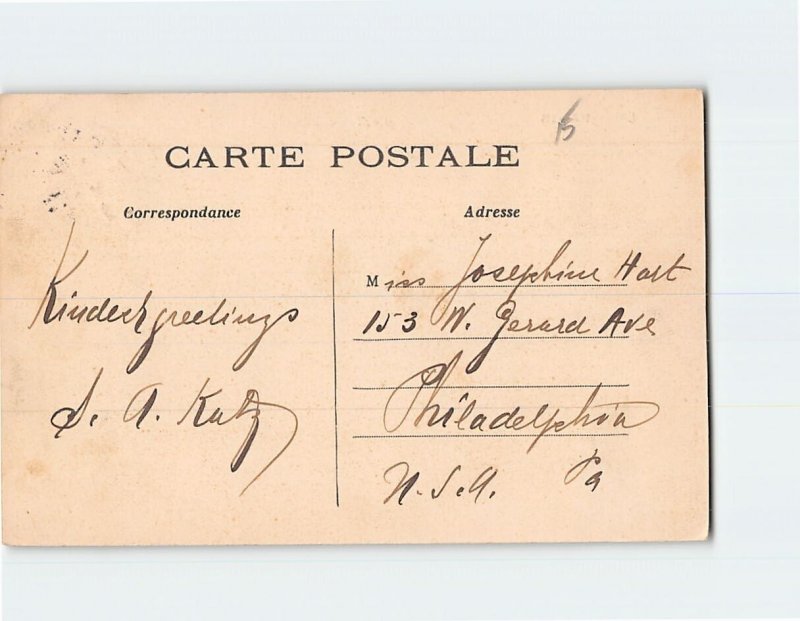 CARTE POSTALE
Correspondance
Adresse
Kindest greetings
S. A. Katz
Miss Josephine Hart
153 W. Gerard Ave
Philadelphia
Pa
U.S.A.